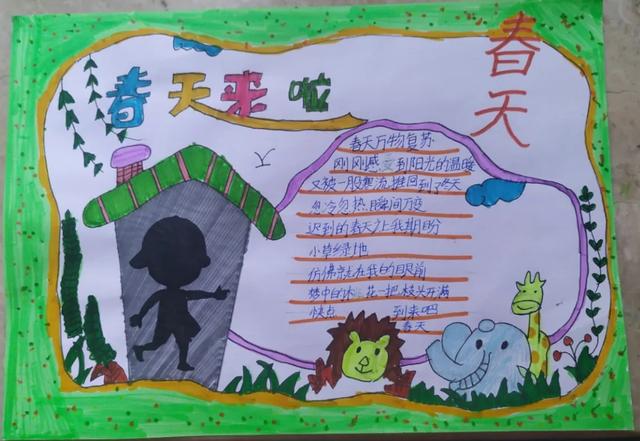 春天来啦
春天
春天万物复苏
刚刚感受到阳光的温暖
又被一股寒流推回到了冬天
忽冷忽热瞬间万变
迟到的春天让我期盼
小草绿地
仿佛就在我的眼前
梦中的 花一把枝头开满
快点 到来吧
春天